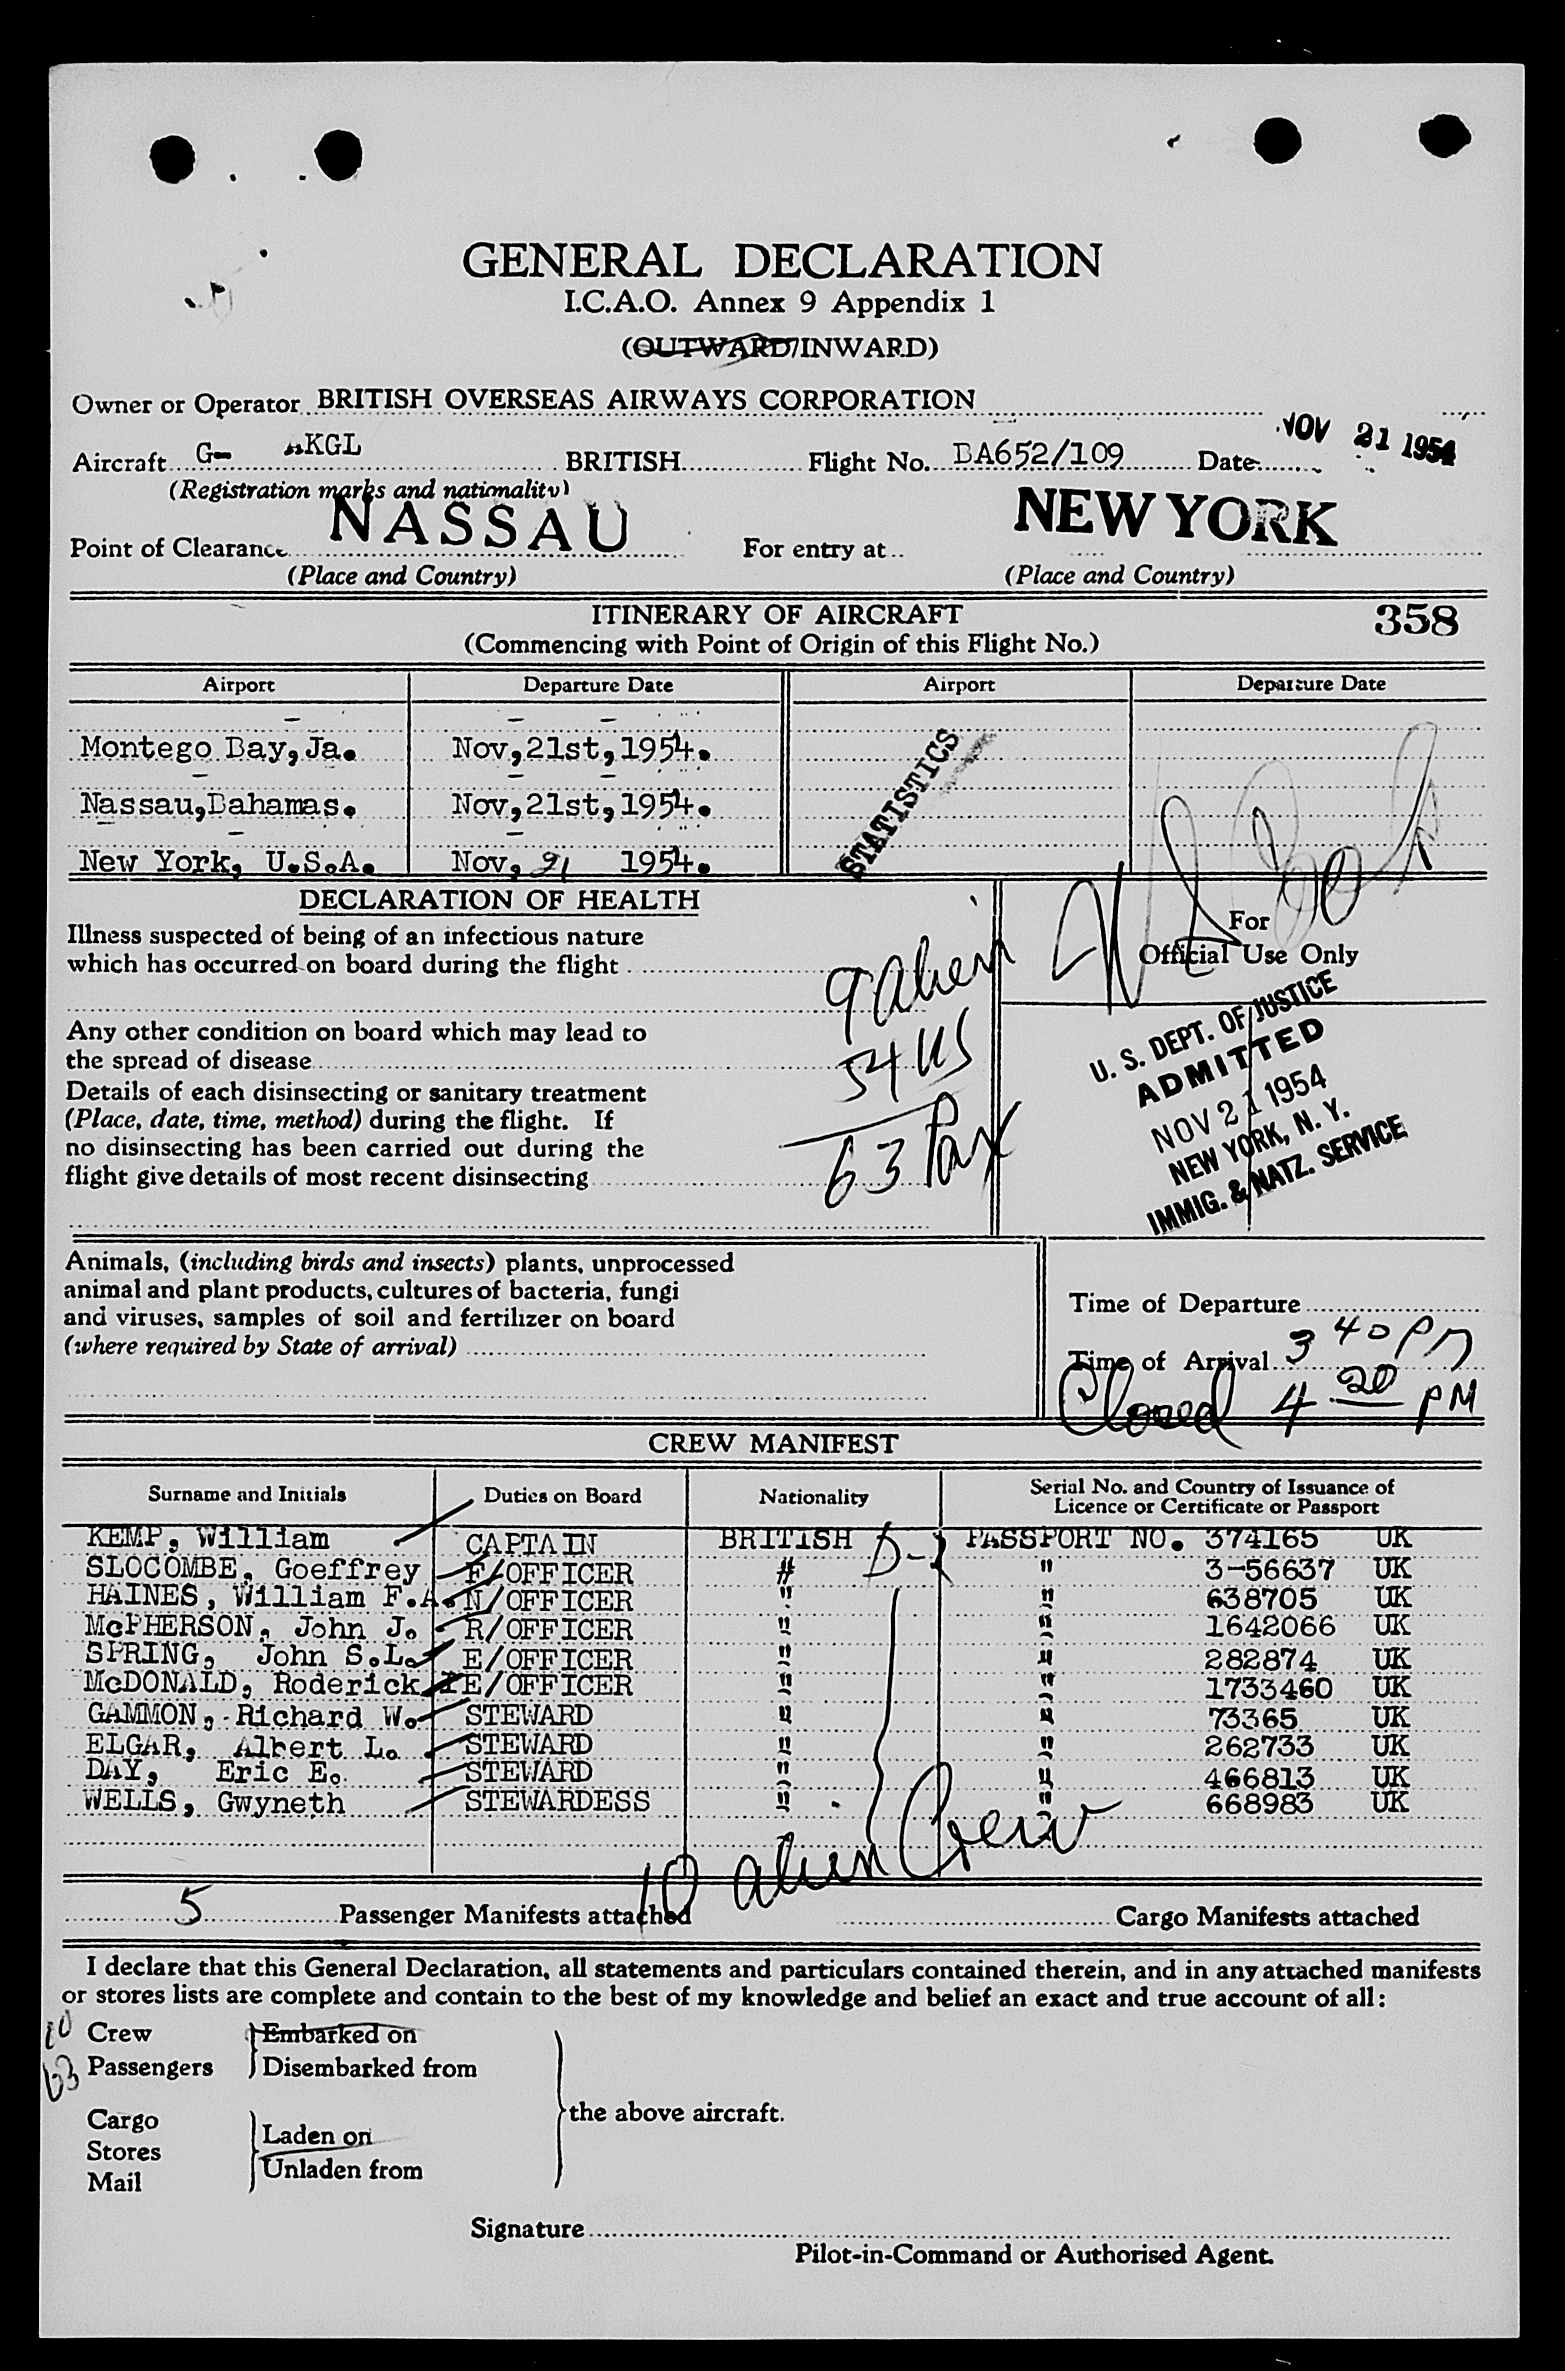 GENERAL DECLARATION
I.C.A.O. Annex 9 Appendix 1
(OUTWARD/INWARD)
Owner or Operator BRITISH OVERSEAS AIRWAYS CORPORATION
Aircraft G- AKGL BRITISH Flight No. BA652/109 Date NOV 21 1954
(Registration marks and nationality)
Point of Clearance NASSAU For entry at NEW YORK
(Place and Country) (Place and Country)
ITINERARY OF AIRCRAFT 358
(Commencing with Point of Origin of this Flight No.)
Airport Departure Date Airport Departure Date
Montego Bay, Ja. Nov, 21st, 1954.
Nassau, Bahamas. Nov, 21st, 1954.
New York, U.S.A. Nov, 21 1954.
STATISTICS
DECLARATION OF HEALTH
For
Official Use Only
Illness suspected of being of an infectious nature
which has occurred on board during the flight
9 alien
Any other condition on board which may lead to
the spread of disease
54 US
Details of each disinsecting or sanitary treatment
(Place, date, time, method) during the flight. If
no disinsecting has been carried out during the
flight give details of most recent disinsecting
63 Pax
U. S. DEPT. OF JUSTICE
ADMITTED
NOV 21 1954
NEW YORK, N. Y.
IMMIG. & NATZ. SERVICE
Animals, (including birds and insects) plants, unprocessed
animal and plant products, cultures of bacteria, fungi
and viruses, samples of soil and fertilizer on board
(where required by State of arrival)
Time of Departure
Time of Arrival 3 40 PM
Closed 4 20 PM
CREW MANIFEST
Surname and Initials Duties on Board Nationality Serial No. and Country of Issuance of
Licence or Certificate or Passport
KEMP, William CAPTAIN BRITISH D-1 PASSPORT NO. 374165 UK
SLOCOMBE, Goeffrey F/OFFICER # " 3-56637 UK
HAINES, William F.A. N/OFFICER " " 638705 UK
McPHERSON, John J. R/OFFICER " " 1642066 UK
SPRING, John S.L. E/OFFICER " " 282874 UK
McDONALD, Roderick E/OFFICER " " 1733460 UK
GAMMON, Richard W. STEWARD " " 73365 UK
ELGAR, Albert L. STEWARD " " 262733 UK
DAY, Eric E. STEWARD " " 466813 UK
WELLS, Gwyneth STEWARDESS " " 668983 UK
10 alien Crew
5 Passenger Manifests attached Cargo Manifests attached
I declare that this General Declaration, all statements and particulars contained therein, and in any attached manifests
or stores lists are complete and contain to the best of my knowledge and belief an exact and true account of all:
10 Crew Embarked on
63 Passengers Disembarked from
the above aircraft.
Cargo Laden on
Stores
Mail Unladen from
Signature
Pilot-in-Command or Authorised Agent.